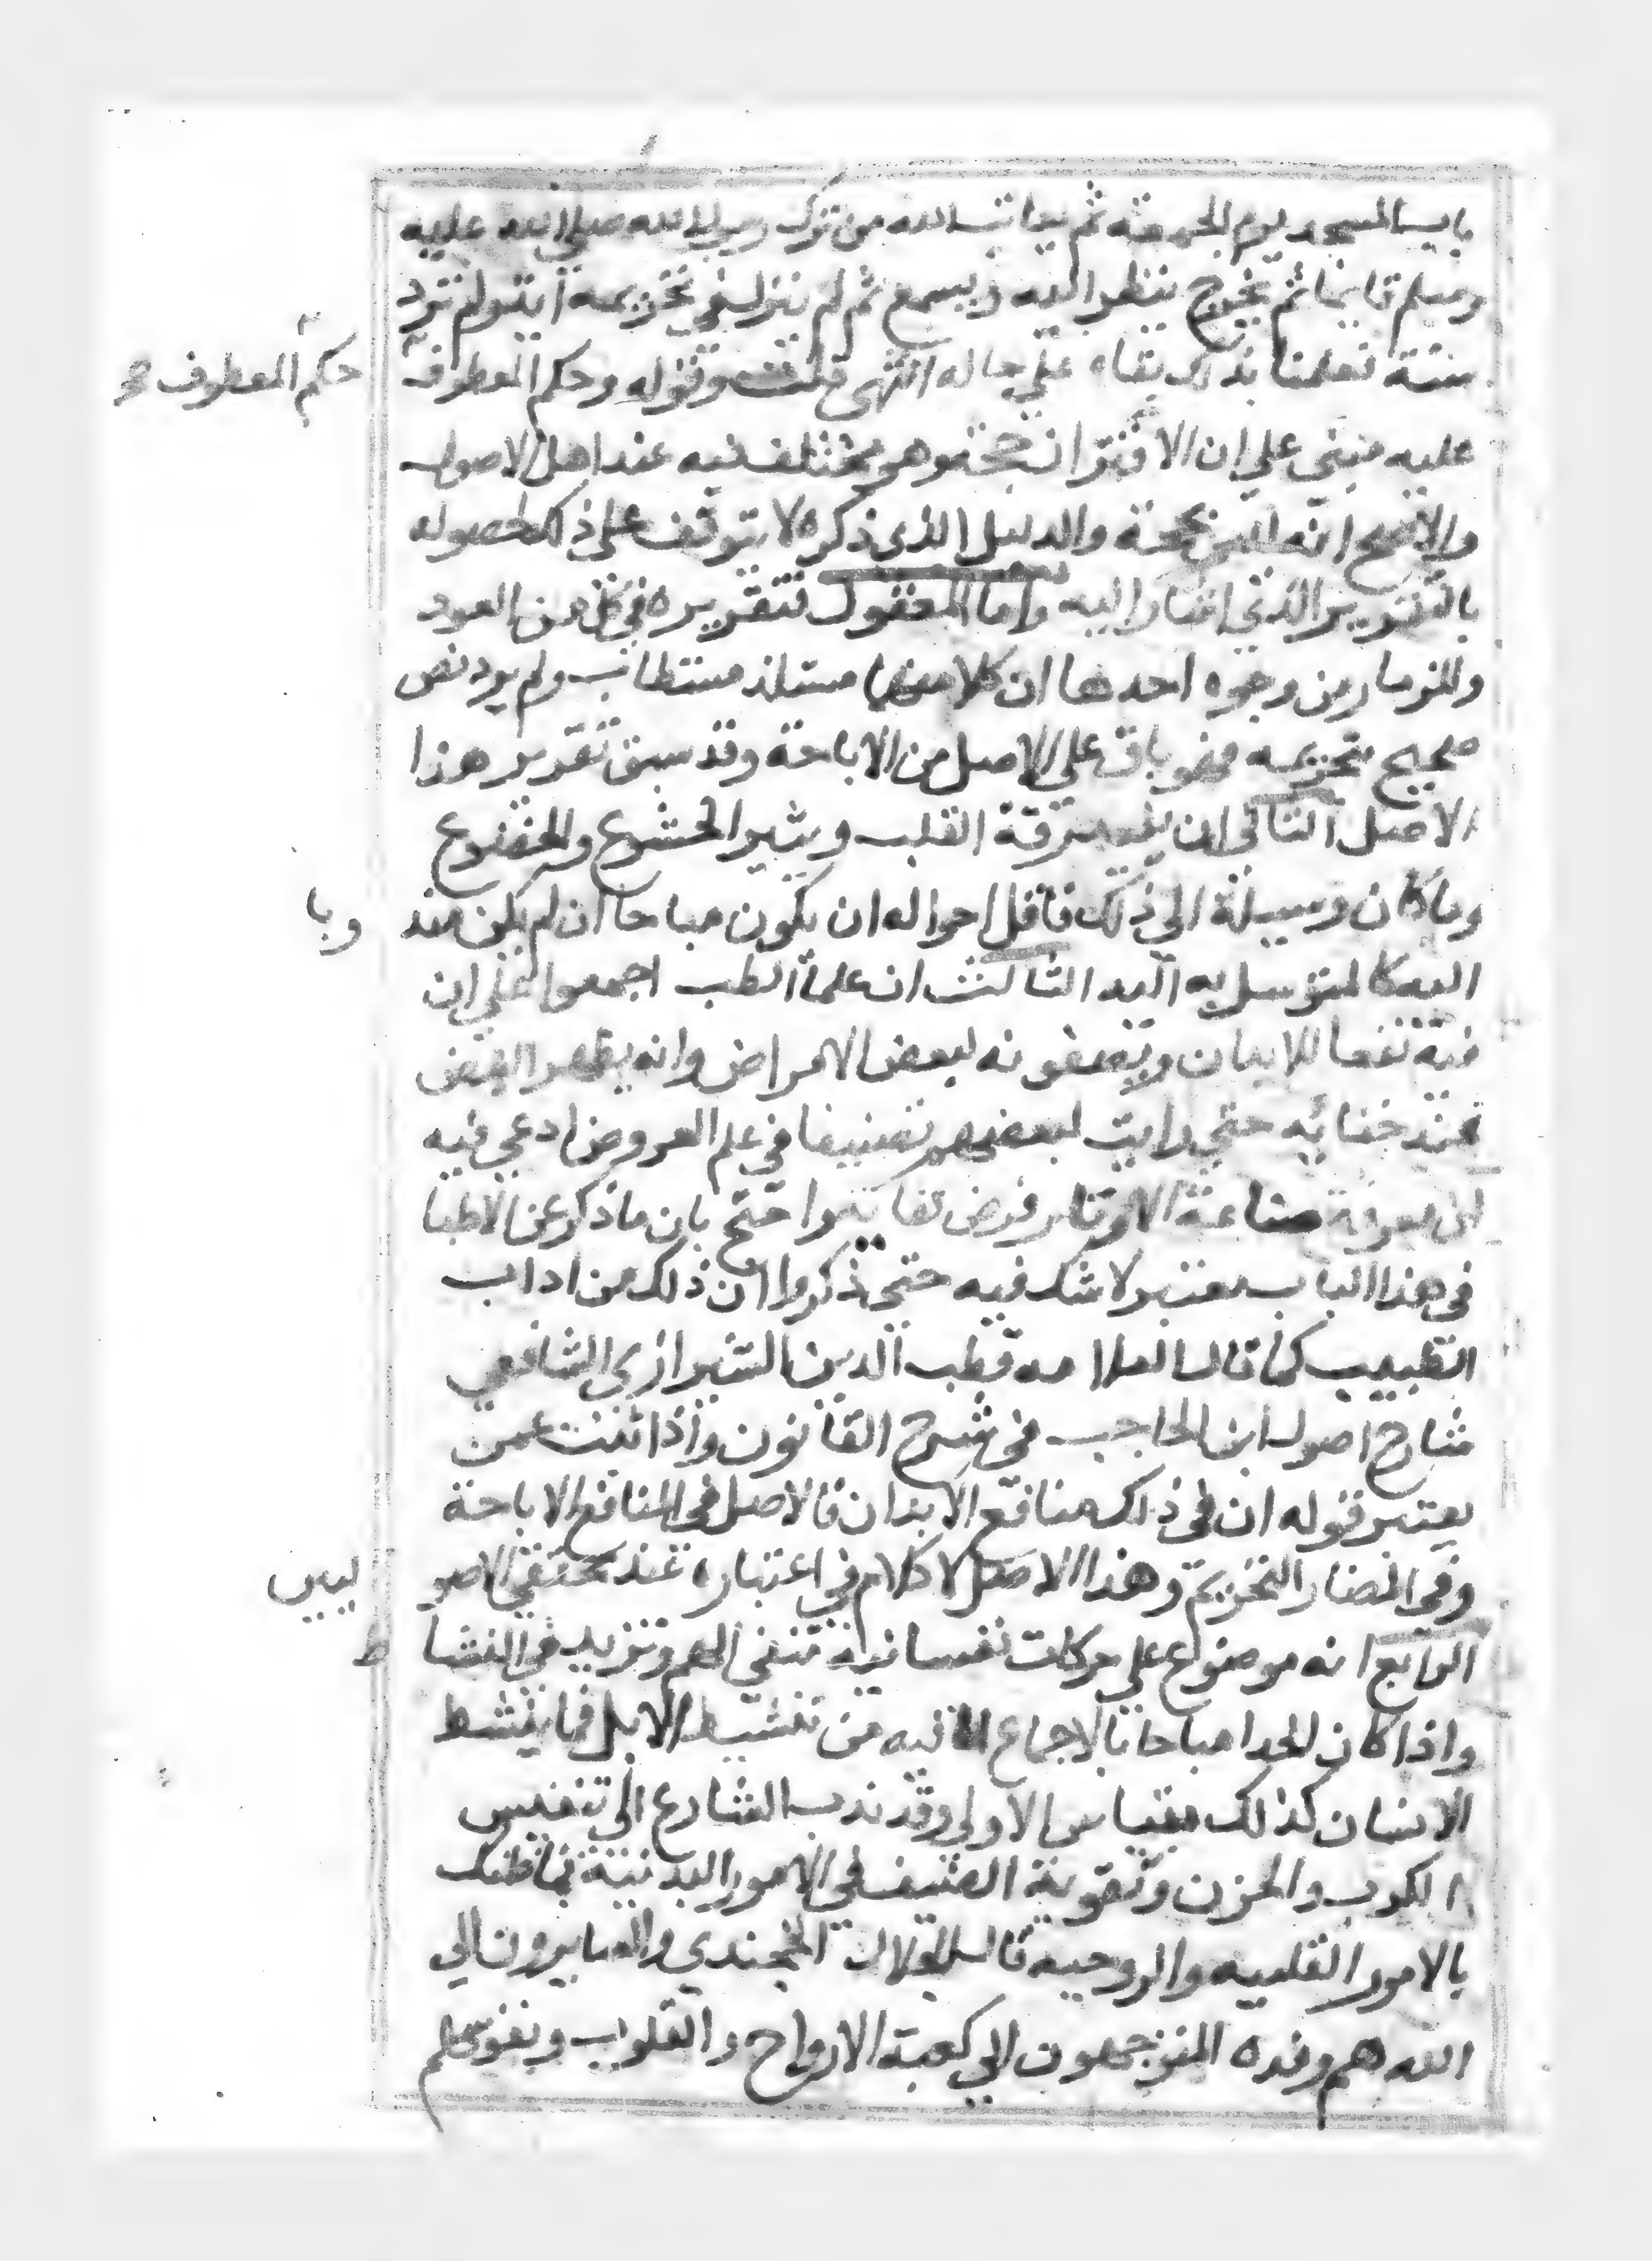 بابــ المسجد يوم الجمعة ثم يعاتبــ الله من ترك رسول الله صلي الله عليه
وسلم قايما ثم يخرج ينظر اليه ويسمع ثم لم ينزل في تحريمه اية ولم ترد
سنة فعلمنا بذلك بقاه علي حاله انتهى قلت وقوله وحكم المعطوف
حكم المعطوف
عليه مبني علي ان الاقتران حجة وهو مختلف فيه عند اهل الاصول
والاصح انه ليس بحجة والدليل الذى ذكره لا يتوقف على ذلك لحصوله
بالتقرير الذى اشار اليه واما المعقول فتقريره في كل من العود
والمزمار من وجوه احدها ان كلا منهما مستلذ مستطاب ولم يرد نص
صحيح بتحريمه فهو باق على الاصل من الاباحة وقد سبق تقرير هذا
الاصل الثاني ان رقة القلب ويثير الخشوع والخضوع
وما كان وسيلة الي ذلك فاقل احواله ان يكون مباحا ان لم يكن مند
وبا
اليه كالمتوسل به اليه الثالث ان علما الطب اجمعوا علي ان
فيه نفعا للابدان ويصفونه لبعض الامراض وانه يظهر النبض
عند خفائه حتي رايت لبعضهم تصنيفا في علم العروض ادعي فيه
ان معرفة صناعة الاوتار فرض كفاية واحتج بان ما ذكر عن الاطبا
في هذا الباب معتبر لا شك فيه حتى ذكروا ان ذلك من اداب
الطبيب كما قال العلامه قطب الدين الشيرازي الشافعي
شارح اصول ابن الحاجب في شرح القانون واذا ثبت عمن
يعتبر قوله ان في ذلك منافع الابدان فالاصل في المنافع الاباحة
وفي المضار التحريم وهذا الاصل لا كلام في اعتباره عند محققي الاصو
ليين
الرابع انه موضوع علي حركات نفسانية تنفي الهم وتزيد في النشا
ط
واذا كان الحدا مباحا بالاجماع لما فيه من تنشيط الابل فما ينشط
الانسان كذلك بقياس الاولي وقد ندب الشارع الى تنفيس
الكرب والحزن وتقوية الضيف في الامور البدنية فما ظنك
بالامور القلبيه والروحيه قال الجلال الخجندي والسايرون الي
الله هم وفده المتوجهون الي كعبة الارواح والقلوب ونفوسهم